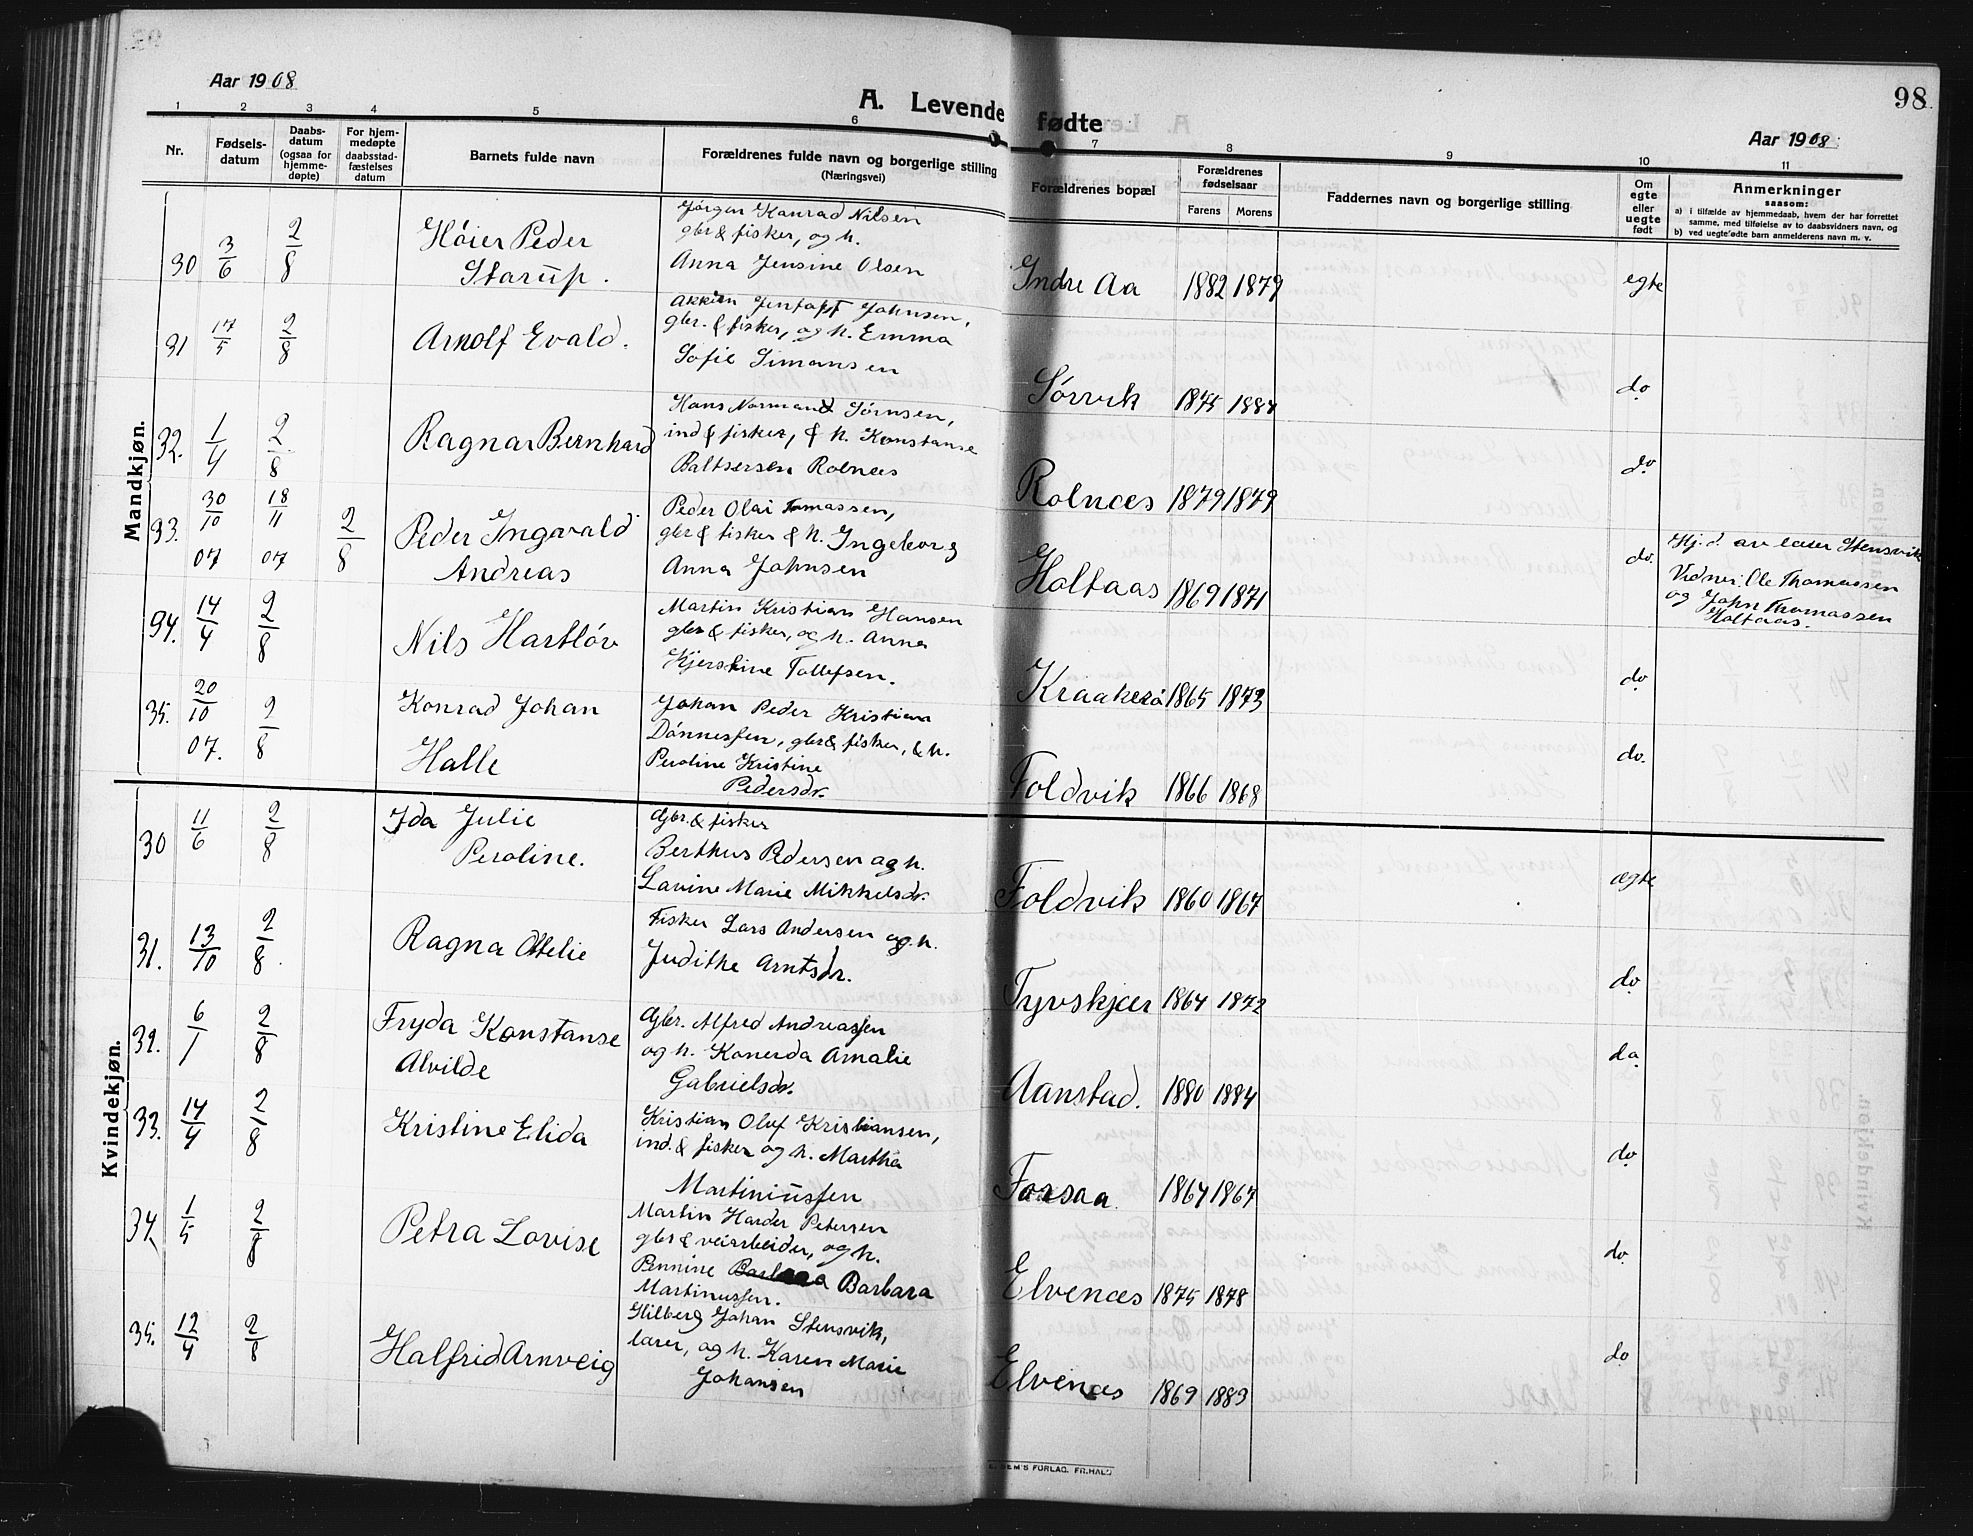 Aar 1908
A. Levende fødte
98.
Aar 1908
1 2 3 4 5 6 7 8 9 10 11
Nr.
Fødsels-
datum
Daabs-
datum
(ogsaa for
hjemme-
døpte)
For hjem-
medøpte
daabsstad-
fæstelses
datum
Barnets fulde navn
Forældrenes fulde navn og borgerlige stilling
(Næringsvei)
Forældrenes bopæl
Forældrenes
fødselsaar
Farens Morens
Faddernes navn og borgerlige stilling
Om
egte
eller
uegte
født
Anmerkninger
saasom:
a) i tilfælde av hjemmedaab, hvem der har forrettet
samme, med tilføielse av to daabsvidners navn, og
b) ved uegtefødte barn anmelderens navn m. v.
Mandkjøn.
30 3/6 2/8 Høier Peder
Starup.
Jørgen Konrad Nilsen
gbr & fisker, og h.
Anna Jensine Olsen
Indre Aa 1882 1879 egte
31 17/5 2/8 Arnolf Evald.
Jentoft Johnsen,
gbr. & fisker, og h. Emma
Sofie Simonsen
Sørvik 1875 1884 do
32. 1/4 2/8 Ragnar Bernhard
Hans Normand Sørnsen,
ind & fisker, & h. Konstanse
Baltsersen Rolnæs
Rolnæs 1879 1879 do
33. 30/10 07 18/11 07 2/8 Peder Ingvald
Andreas
Peder Olai Tomassen,
gbr & fisker & h. Ingeborg
Anna Johnsen
Holtaas 1869 1871 do.
Hj.d. av lærer Stensvik
Vidner: Ole Thomassen
og John Thomassen
Holtaas.
34. 14/4 2/8 Nils Hartløv
Martin Kristian Hansen
gbr & fisker, og h. Anna
Kjerstine Tollefsen.
Kraakerø 1865 1873 do
35. 20/10 07. 2/8 Konrad Johan
Halle
Johan Peder Kristian
Dønnessen, gbr & fisker, & h.
Peroline Kristine
Pedersdr.
Foldvik 1866 1868 do.
Kvindekjøn.
30 11/6 2/8 Ida Julie
Peroline.
Gbr. & fisker
Berthus Pedersen og h.
Lavine Marie Mikkelsdr.
Foldvik 1860 1867 ægte
31. 13/10 2/8 Ragna Ottelie
Fisker Lars Andersen og h.
Judithe Arntsdr.
Tyvskjær 1864 1872 do
32. 6/1 2/8 Fryda Konstanse
Alvilde
Gbr. Alfred Andreassen
og h. Konerda Amalie
Gabrielsdr.
Aanstad. 1880 1884 do
33. 14/4 2/8 Kristine Elida
Kristian Oluf Kristiansen,
ind. & fisker og h. Martha
Martiniussen
Forsaa 1864 1867 do
34. 1/5 2/8 Petra Lovise
Martin Harder Petersen
gbr & veiarbeider, og h.
Pennine Barbara Barbara
Martinussen.
Elvenæs 1875 1878 do
35. 12/4 2/8 Halfrid Arnveig
Hilberg Johan Stensvik,
lærer, og h. Karen Marie
Johansen
Elvenæs 1869 1883 do
SEM'S FORLAG. FR.HALD